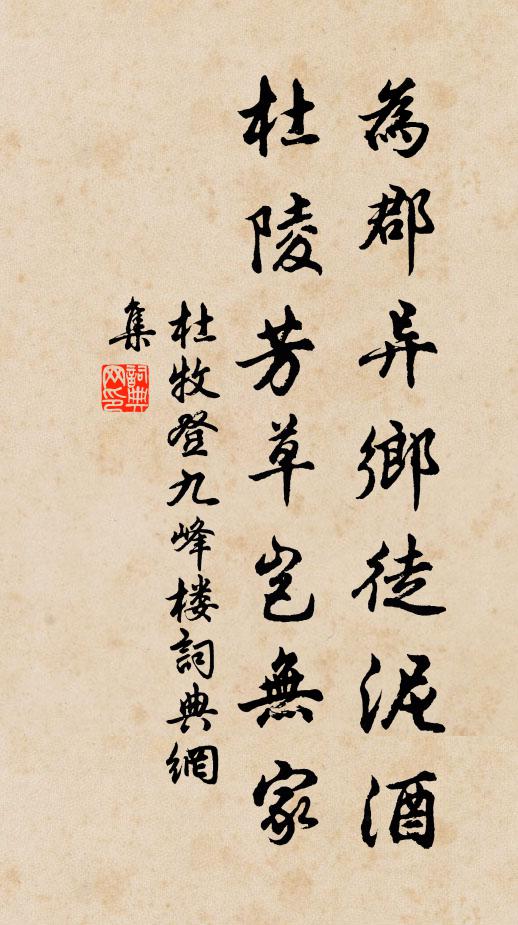 為郡异鄉徒泥酒
杜陵芳草豈無家
杜牧登九峰楼詞典網
集
詞典网印